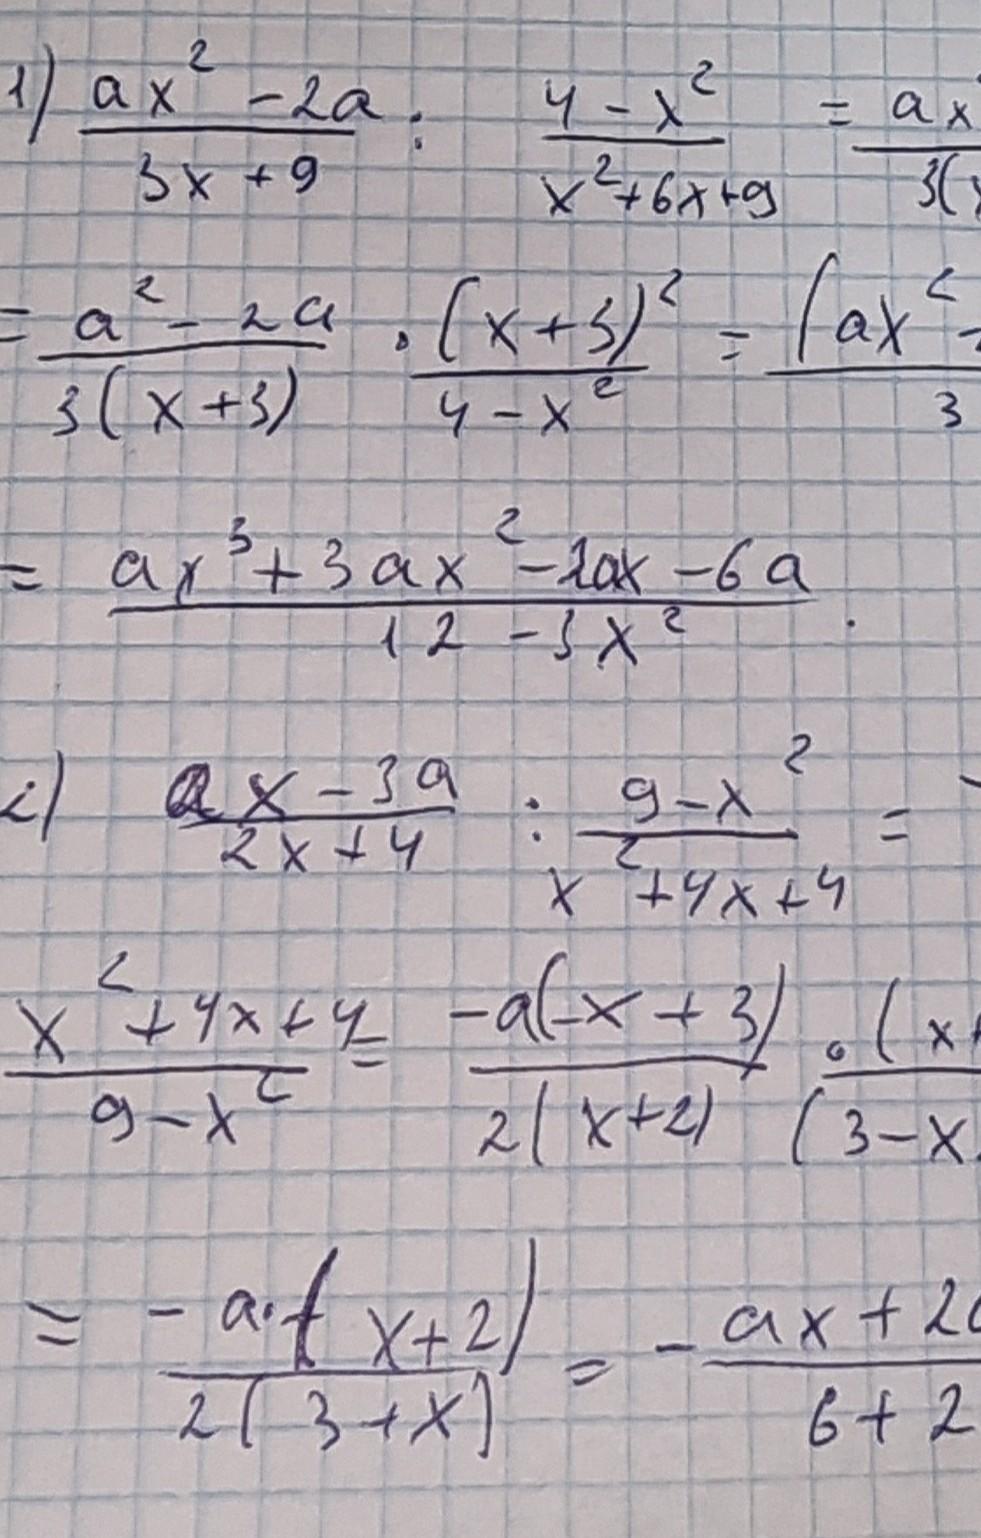 1) (ax² - 2a)/(3x + 9) : (4 - x²)/(x² + 6x + 9) = ax/3(
= (a² - 2a)/(3(x + 3)) · (x + 3)²/(4 - x²) = (ax²/3
= (ax³ + 3ax² - 2ax - 6a)/(12 - 3x²).
2) (ax - 3a)/(2x + 4) : (9 - x²)/(x² + 4x + 4) =
(x² + 4x + 4)/(9 - x²) = -a(-x + 3)/(2(x + 2)) · (x+/(3 - x
= -a·(x + 2)/(2(3 + x)) = - (ax + 2a)/(6 + 2